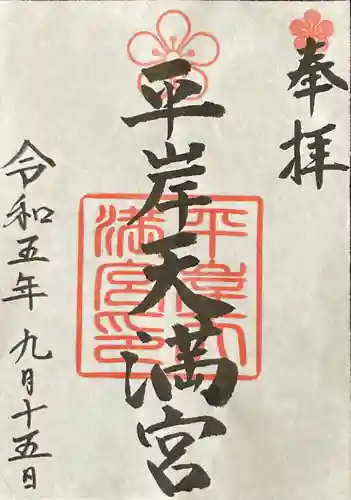 奉拝
平岸天満宮
平岸天満宮印
令和五年 九月十五日